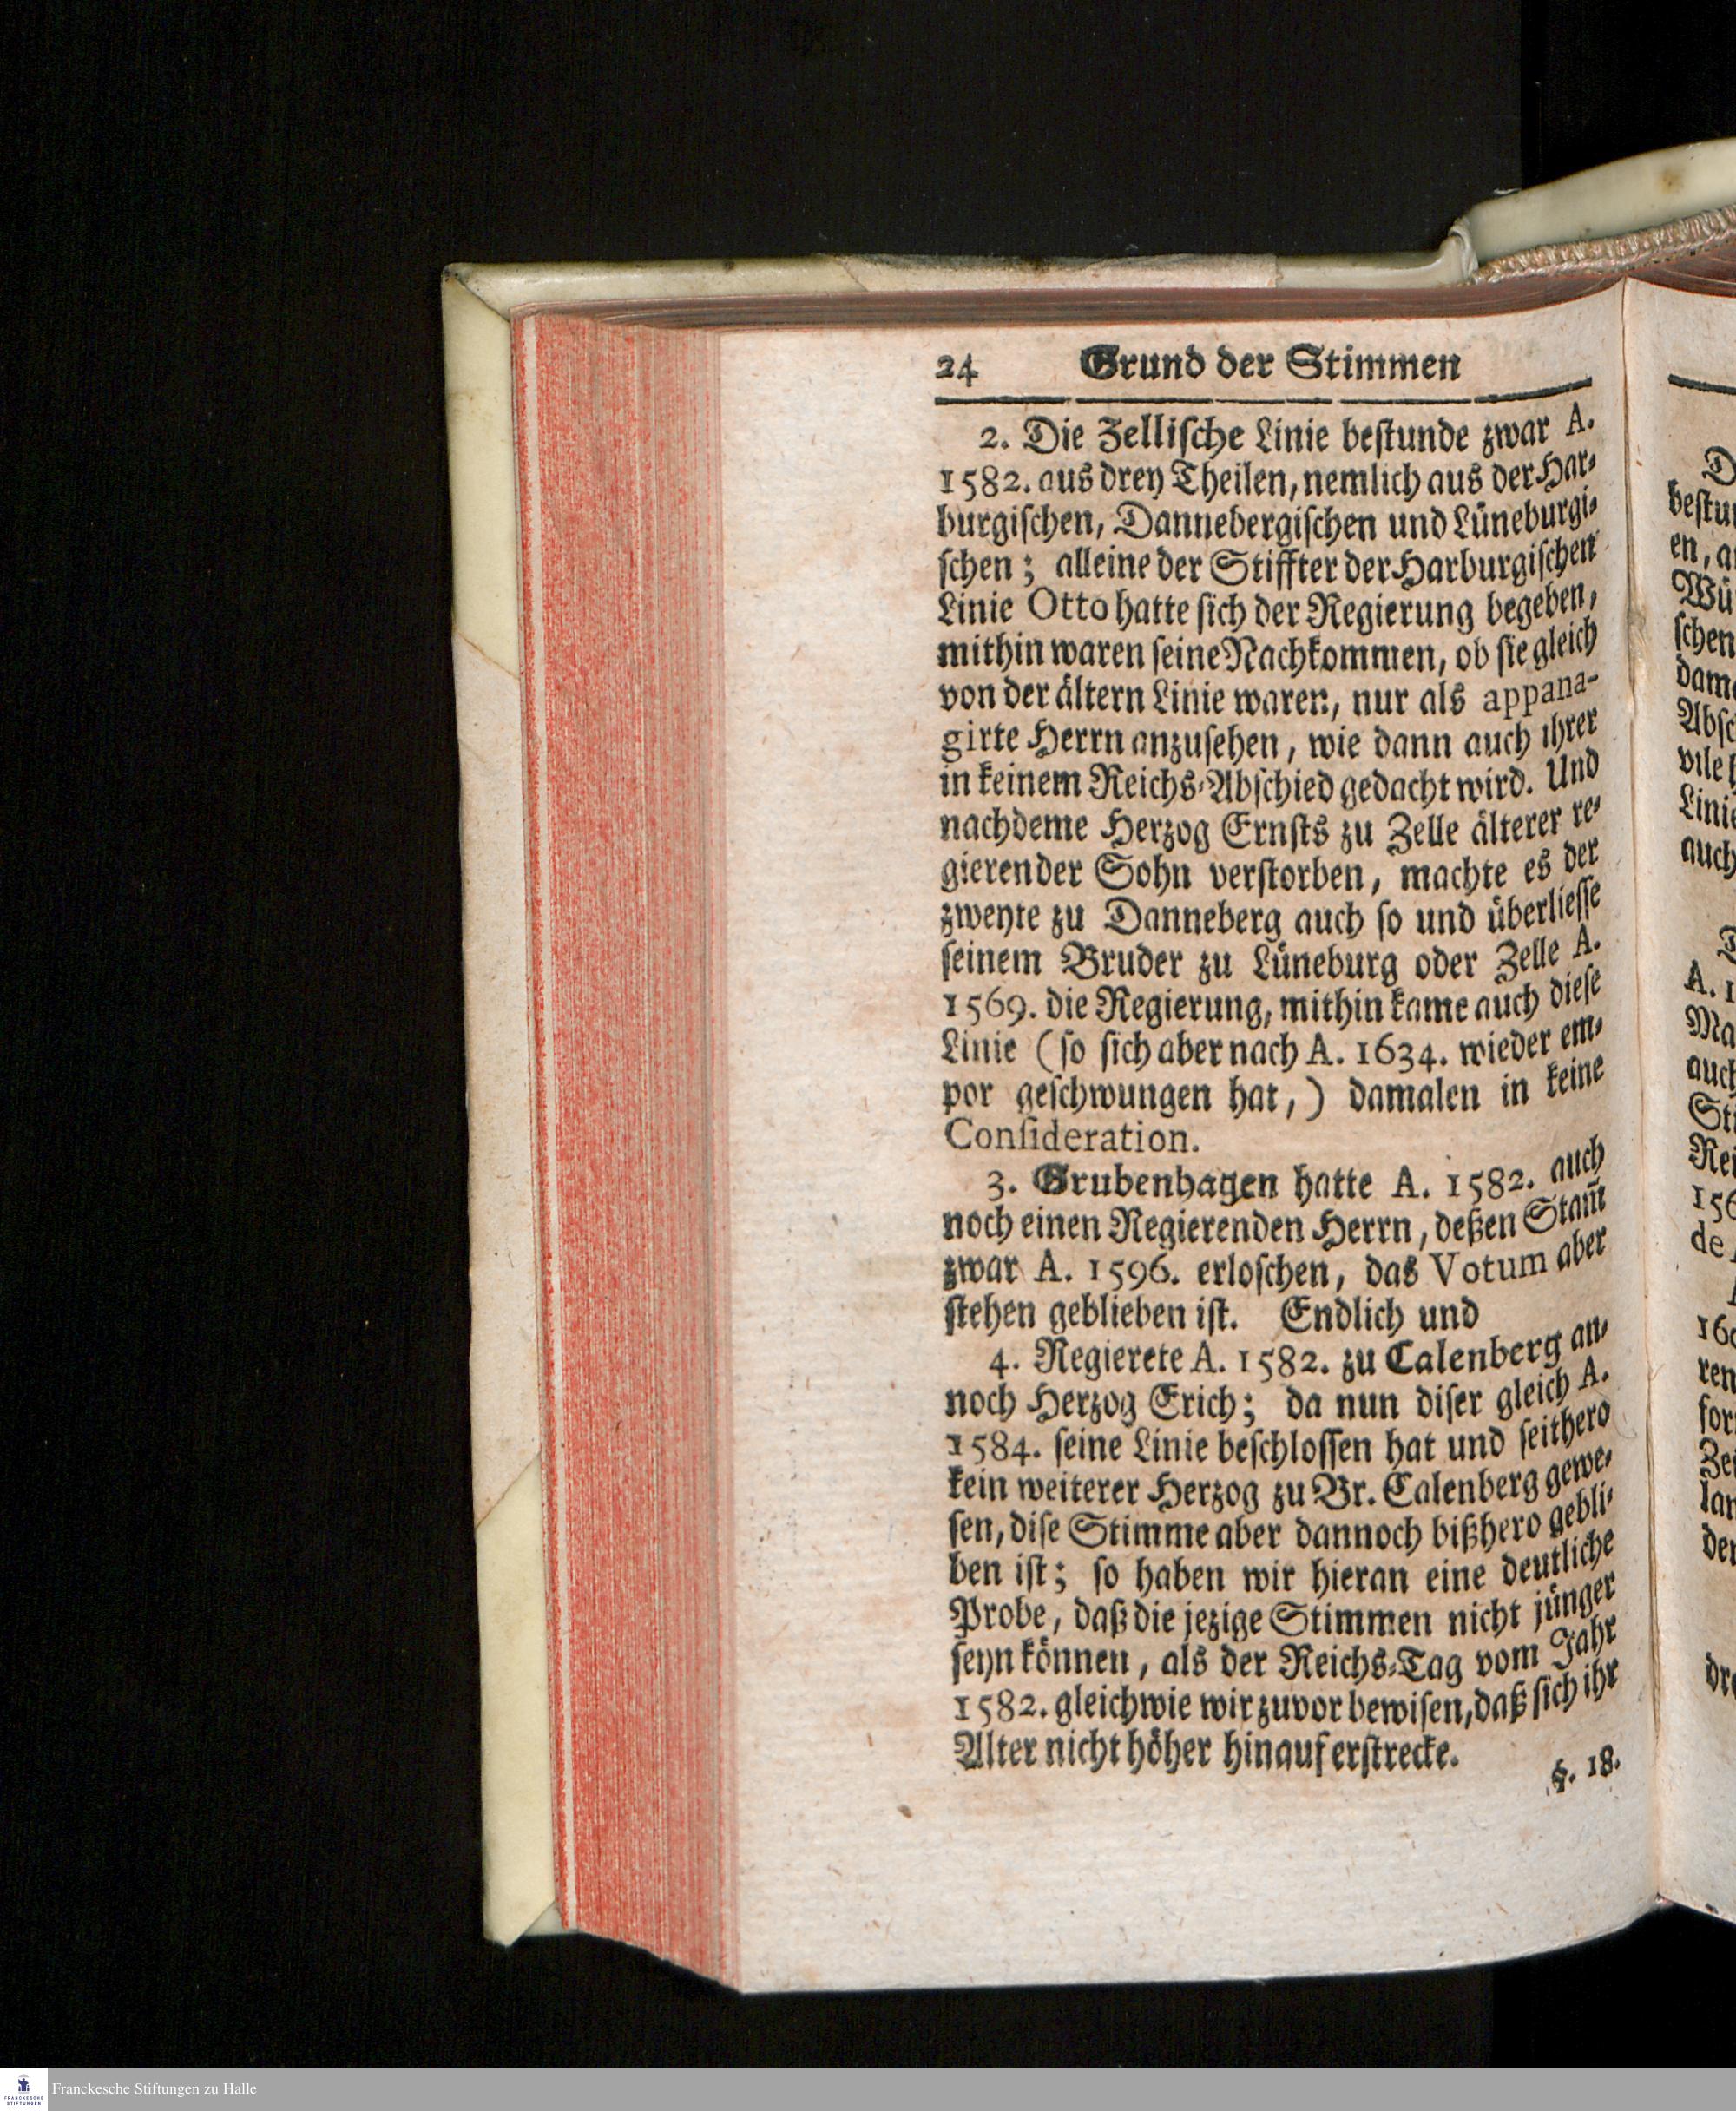 24 Grund der Stimmen
2. Die Zellische Linie bestunde zwar A.
1582. aus drey Theilen, nemlich aus der Har-
burgischen, Dannebergischen und Lüneburgi-
schen; alleine der Stiffter der Harburgischen
Linie Otto hatte sich der Regierung begeben,
mithin waren seine Nachkommen, ob sie gleich
von der ältern Linie waren, nur als appana-
girte Herrn anzusehen, wie dann auch ihrer
in keinem Reichs-Abschied gedacht wird. Und
nachdeme Herzog Ernsts zu Zelle älterer re-
gierender Sohn verstorben, machte es der
zweyte zu Danneberg auch so und überliesse
seinem Bruder zu Lüneburg oder Zelle A.
1569. die Regierung, mithin kame auch diese
Linie (so sich aber nach A. 1634. wieder em-
por geschwungen hat,) damalen in keine
Consideration.
3. Grubenhagen hatte A. 1582. auch
noch einen Regierenden Herrn, deßen Stam̃
zwar A. 1596. erloschen, das Votum aber
stehen geblieben ist. Endlich und
4. Regierete A. 1582. zu Calenberg an-
noch Herzog Erich; da nun diser gleich A.
1584. seine Linie beschlossen hat und seithero
kein weiterer Herzog zu Br. Calenberg gewe-
sen, dise Stimme aber dannoch bißhero gebli-
ben ist; so haben wir hieran eine deutliche
Probe, daß die jezige Stimmen nicht jünger
seyn können, als der Reichs-Tag vom Jahr
1582. gleichwie wir zuvor bewisen, daß sich ihr
Alter nicht höher hinauf erstrecke.
§. 18.
bestu
en, a
Wü
schen
dam
Absc
Lini
auch
A. 1
Ma
auch
St
Rei
156
de
160
ren
for
Zei
lan
der
Franckesche Stiftungen zu Halle
FRANCKESCHE
STIFTUNGEN